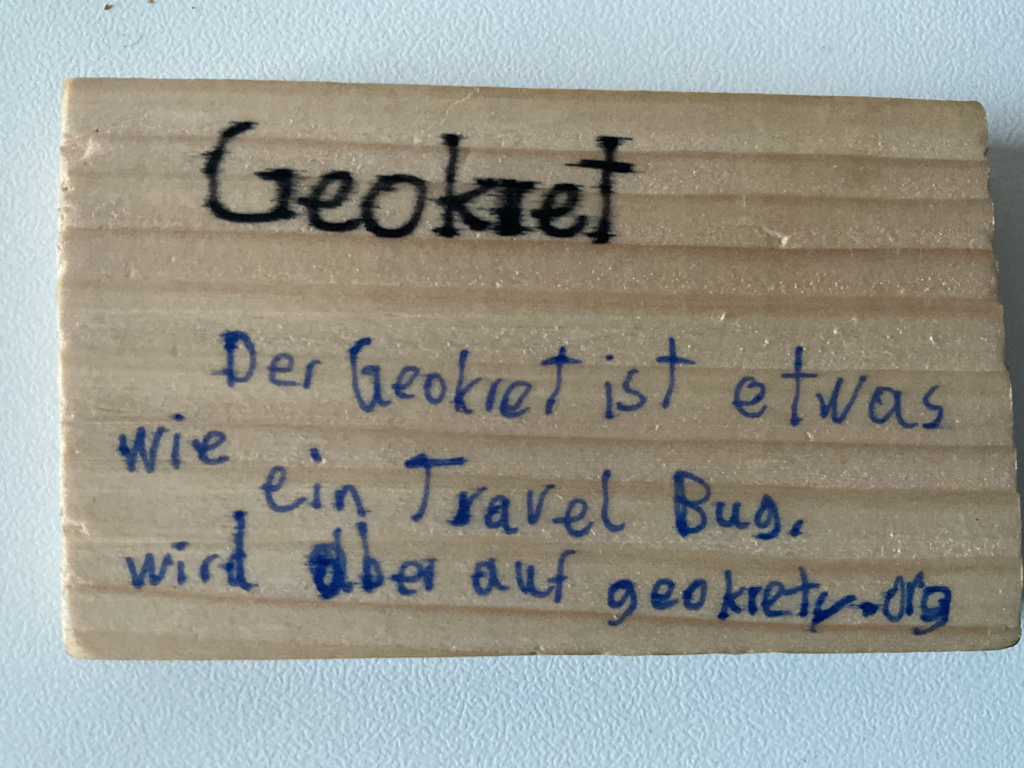 Geokret
Der Geokret ist etwas
wie ein Travel Bug.
wird aber auf geokrety.org